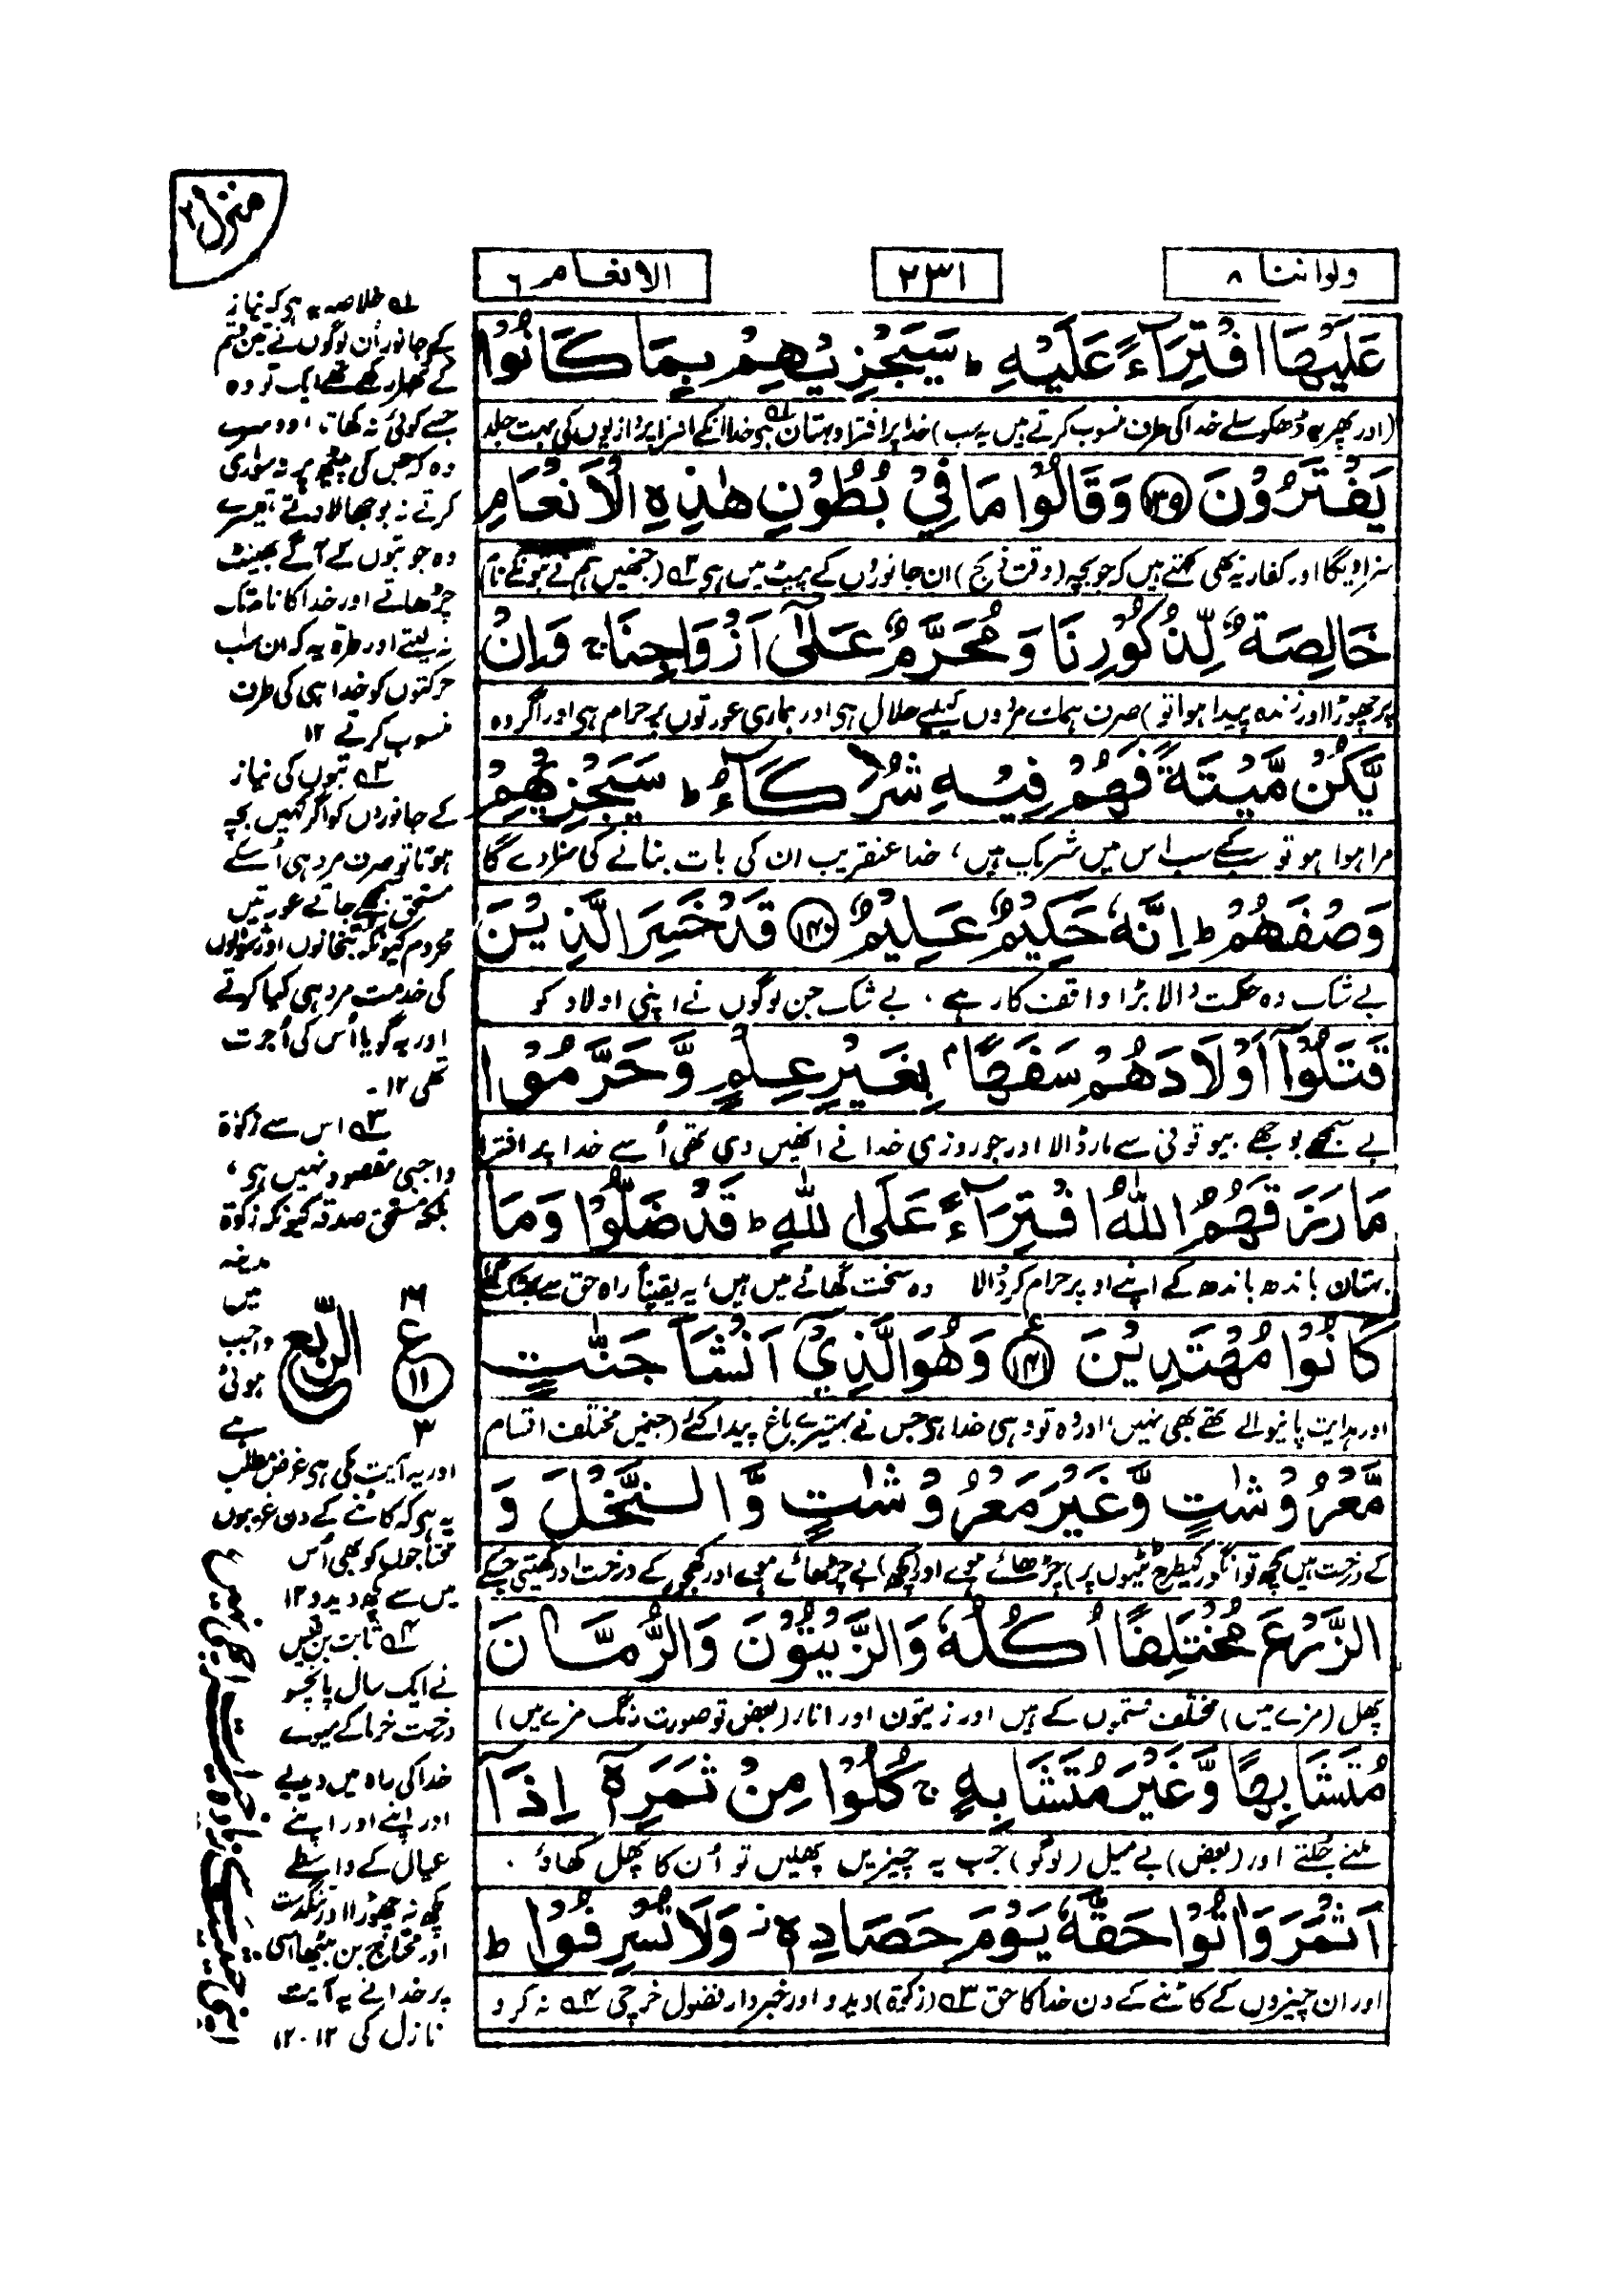 منزل ۲
ولواننا ۸
۲۳۱
الانعام ۶
عَلَيْهَا افْتِرَآءً عَلَيْهِ ؕ سَيَجْزِيْهِمْ بِمَا كَانُوْا
(اور پھر یہ ڈھکوسلے خدا کی طرف منسوب کرتے ہیں یہ سب) خدا پر افترا و بہتان ہی ؎۱ خدا انکے افترا پردازیوں کی بہت جلد
يَفْتَرُوْنَ ﴿۱۳۹﴾ وَقَالُوْا مَا فِيْ بُطُوْنِ هٰذِهِ الْاَنْعَامِ
سزا دیگا اور کفار یہ بھی کہتے ہیں کہ جو بچہ (وقت ذبح) ان جانوروں کے پیٹ میں ہی ؎۲ (جنھیں ہم نے بتونکے نام
خَالِصَةٌ لِّذُكُوْرِنَا وَ مُحَرَّمٌ عَلٰٓى اَزْوَاجِنَا ۚ وَاِنْ
پر چھوڑا اور زندہ پیدا ہوا تو) صرف ہمارے مردوں کیلیے حلال ہی اور ہماری عورتوں پر حرام ہی اور اگر وہ
يَّكُنْ مَّيْتَةً فَهُمْ فِيْهِ شُرَكَآءُ ؕ سَيَجْزِيْهِمْ
مرا ہوا ہو تو سب کے سب اس میں شریک ہیں، خدا عنقریب ان کی بات بنانے کی سزا دے گا
وَصْفَهُمْ ؕ اِنَّهٗ حَكِيْمٌ عَلِيْمٌ ﴿۱۴۰﴾ قَدْ خَسِرَ الَّذِيْنَ
بے شک وہ حکمت والا بڑا واقف کار ہے ۰ بے شک جن لوگوں نے اپنی اولاد کو
قَتَلُوْٓا اَوْلَادَهُمْ سَفَهًاۢ بِغَيْرِ عِلْمٍ وَّ حَرَّمُوْا
بے سمجھے بوجھے بیوقوفی سے مار ڈالا اور جو روزی خدا نے انھیں دی تھی اُسے خدا پر افترا
مَا رَزَقَهُمُ اللّٰهُ افْتِرَآءً عَلَى اللّٰهِ ؕ قَدْ ضَلُّوْا وَمَا
بہتان باندھ باندھ کے اپنے اوپر حرام کر ڈالا وہ سخت گھاٹے میں ہیں، یہ یقیناً راہ حق سے بھٹک گئے
كَانُوْا مُهْتَدِيْنَ ﴿۱۴۱﴾ وَهُوَ الَّذِيْٓ اَنْشَاَ جَنّٰتٍ
اور ہدایت پانیوالے تھے بھی نہیں، اور وہ تو وہی خدا ہی جس نے بہتیرے باغ پیدا کئے (جنمیں مختلف اقسام
مَّعْرُوْشٰتٍ وَّ غَيْرَ مَعْرُوْشٰتٍ وَّ النَّخْلَ وَ
کے درخت ہیں کچھ تو انگور کیطرح ٹٹیوں پر) چڑھائے ہوئے اور (کچھ) بے چڑھائے ہوئے اور کھجور کے درخت اور کھیتی جسکے
الزَّرْعَ مُخْتَلِفًا اُكُلُهٗ وَالزَّيْتُوْنَ وَالرُّمَّانَ
پھل (مزے میں) مختلف قسموں کے ہیں اور زیتون اور انار (بعض تو صورت رنگ مزے میں)
مُتَشَابِهًا وَّ غَيْرَ مُتَشَابِهٍ ۚ كُلُوْا مِنْ ثَمَرِهٖٓ اِذَآ
ملتے جلتے اور (بعض) بے میل (لوگو) جب یہ چیزیں پھلیں تو اُن کا پھل کھاؤ ۰
اَثْمَرَ وَ اٰتُوْا حَقَّهٗ يَوْمَ حَصَادِهٖ ۖ وَلَا تُسْرِفُوْا ؕ
اور ان چیزوں کے کاٹنے کے دن خدا کا حق ؎۳ (زکوٰۃ) دیدو اور خبردار فضول خرچی ؎۴ نہ کرو
؎۱ خلاصہ یہ ہی کہ نیاز
کے جانور ان لوگوں نے تین قسم
کے ٹھہرا رکھے تھے ایک تو وہ
جسے کوئی نہ کھاتا، دوسرے
وہ کہ جس کی پیٹھ پر نہ سواری
کرتے نہ بوجھا لادتے، تیسرے
وہ جو بتوں کے آگے بھینٹ
چڑھاتے اور خدا کا نام تک
نہ لیتے اور طرہ یہ کہ ان سب
حرکتوں کو خدا ہی کی طرف
منسوب کرتے ۱۲
؎۲ بتوں کی نیاز
کے جانوروں کو اگر کہیں بچہ
ہوتا تو صرف مرد ہی اُسکے
مستحق سمجھے جاتے عورتیں
محروم کیونکہ بتخانوں اور
کی خدمت مرد ہی کیا کرتے
اور یہ گویا اُس کی اُجرت
تھی ۱۲۔
؎۳ اس سے زکوٰۃ
واجبی مقصود نہیں ہی،
بلکہ مستحق صدقہ کیونکہ زکوٰۃ
مدینہ
میں
واجب
ہوئی
ہے
الربع
۱۶
ع
۱۱
۳
اور یہ آیت مکی ہی غرض مطلب
یہ ہی کہ کاٹنے کے دن غریبوں
محتاجوں کو بھی اُس
میں سے کچھ دیدو ۱۲
؎۴ ثابت بن قیس
نے ایک سال پانچسو
درخت خرما کے میوے
خدا کی راہ میں دیدیے
اور اپنے اور اپنے
عیال کے واسطے
کچھ نہ چھوڑا اور تنگدست
اور محتاج بن بیٹھا اسی
پر خدا نے یہ آیت
نازل کی ۱۲۔۱۲